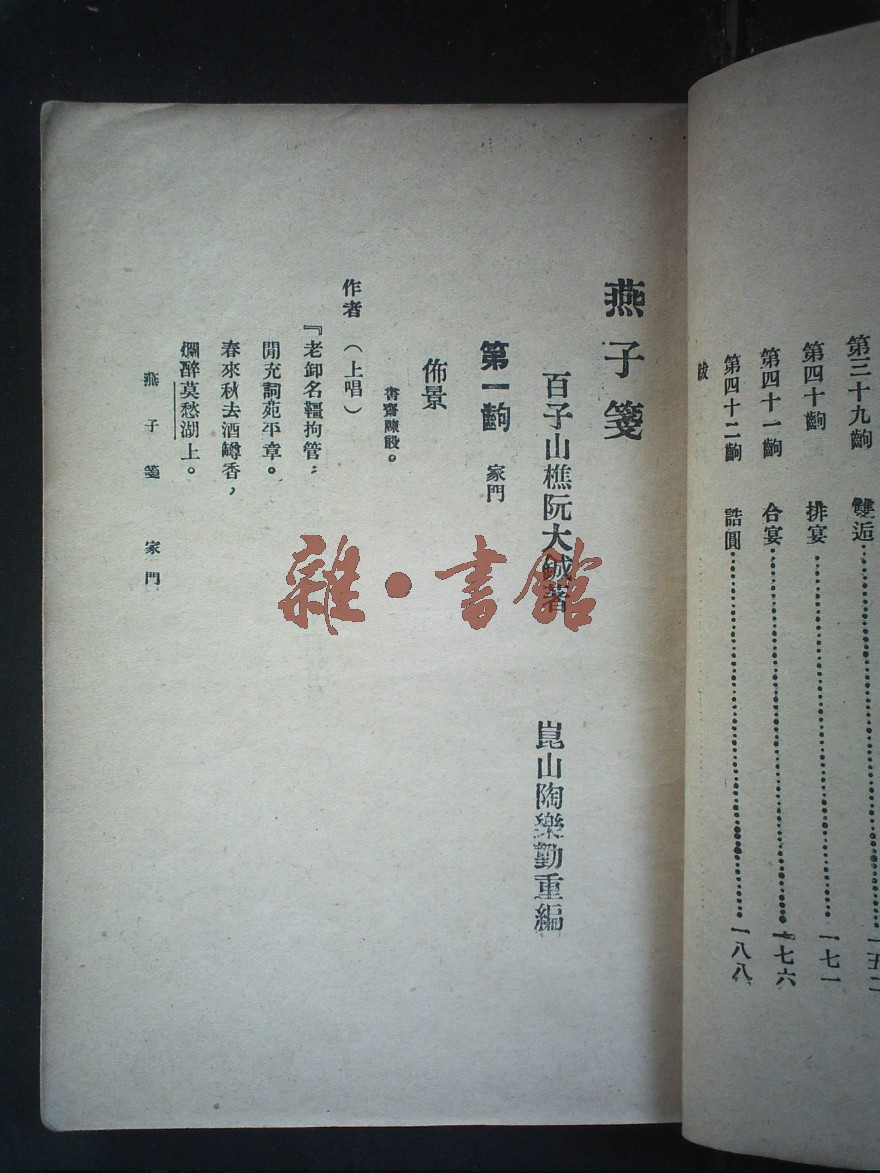 第三十九齣 雙逅 一五二
第四十齣 排宴 一七一
第四十一齣 合宴 一七六
第四十二齣 誥圓 一八八
跋
燕子箋
百子山樵阮大鋮著 崑山陶樂勤重編
第一齣 家門
佈景
書齋陳設。
作者 (上唱)
『老卸名韁拘管,
閒充詞苑平章。
春來秋去酒鱒香,
爛醉莫愁湖上。
燕子箋 家門
雜·書館